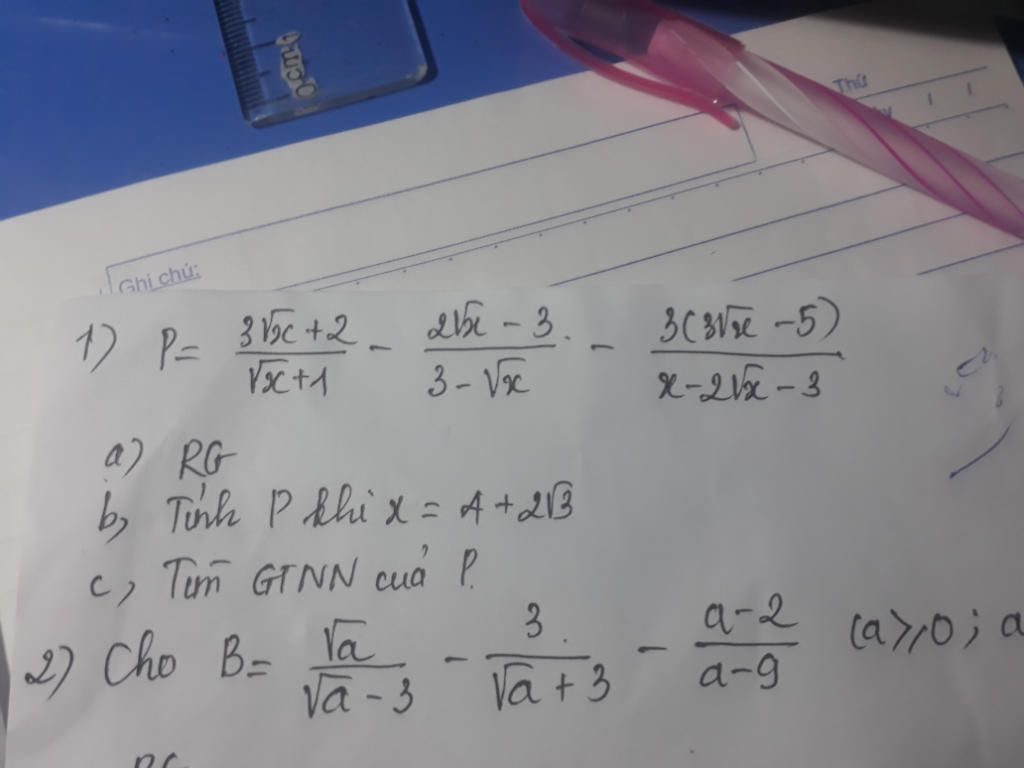 10cm
Thứ
Ghi chú:
1) P = \frac{3\sqrt{x}+2}{\sqrt{x}+1} - \frac{2\sqrt{x}-3}{3-\sqrt{x}} - \frac{3(3\sqrt{x}-5)}{x-2\sqrt{x}-3}
a) RG
b, Tính P khi x = 4+2\sqrt{3}
c, Tìm GTNN của P.
2) Cho B = \frac{\sqrt{a}}{\sqrt{a}-3} - \frac{3}{\sqrt{a}+3} - \frac{a-2}{a-9} (a ≥ 0; a